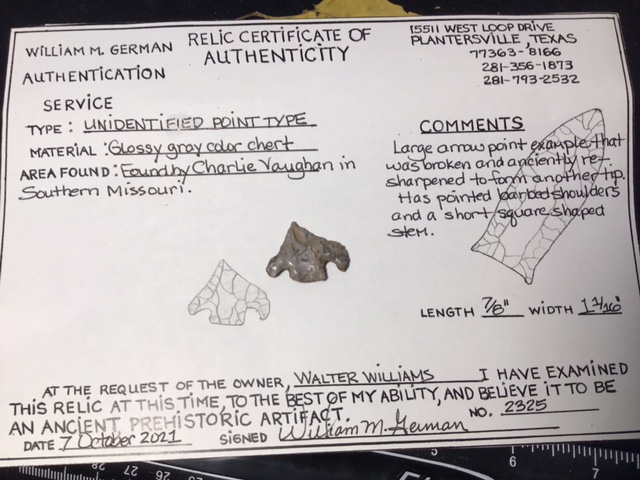 WILLIAM M. GERMAN
AUTHENTICATION
SERVICE
RELIC CERTIFICATE OF
AUTHENTICITY
15511 WEST LOOP DRIVE
PLANTERSVILLE, TEXAS
77363-8166
281-356-1873
281-793-2532
TYPE: UNIDENTIFIED POINT TYPE
MATERIAL: Glossy gray color chert
AREA FOUND: Found by Charlie Vaughan in
Southern Missouri.
COMMENTS
Large arrow point example that
was broken and anciently re-
sharpened to form another tip.
Has pointed barbed shoulders
and a short square shaped
stem.
LENGTH 7/8" WIDTH 1 1/16"
AT THE REQUEST OF THE OWNER, WALTER WILLIAMS I HAVE EXAMINED
THIS RELIC AT THIS TIME, TO THE BEST OF MY ABILITY, AND BELIEVE IT TO BE
AN ANCIENT PREHISTORIC ARTIFACT. NO. 2325
DATE 7 October 2021 SIGNED William M. German
6 7